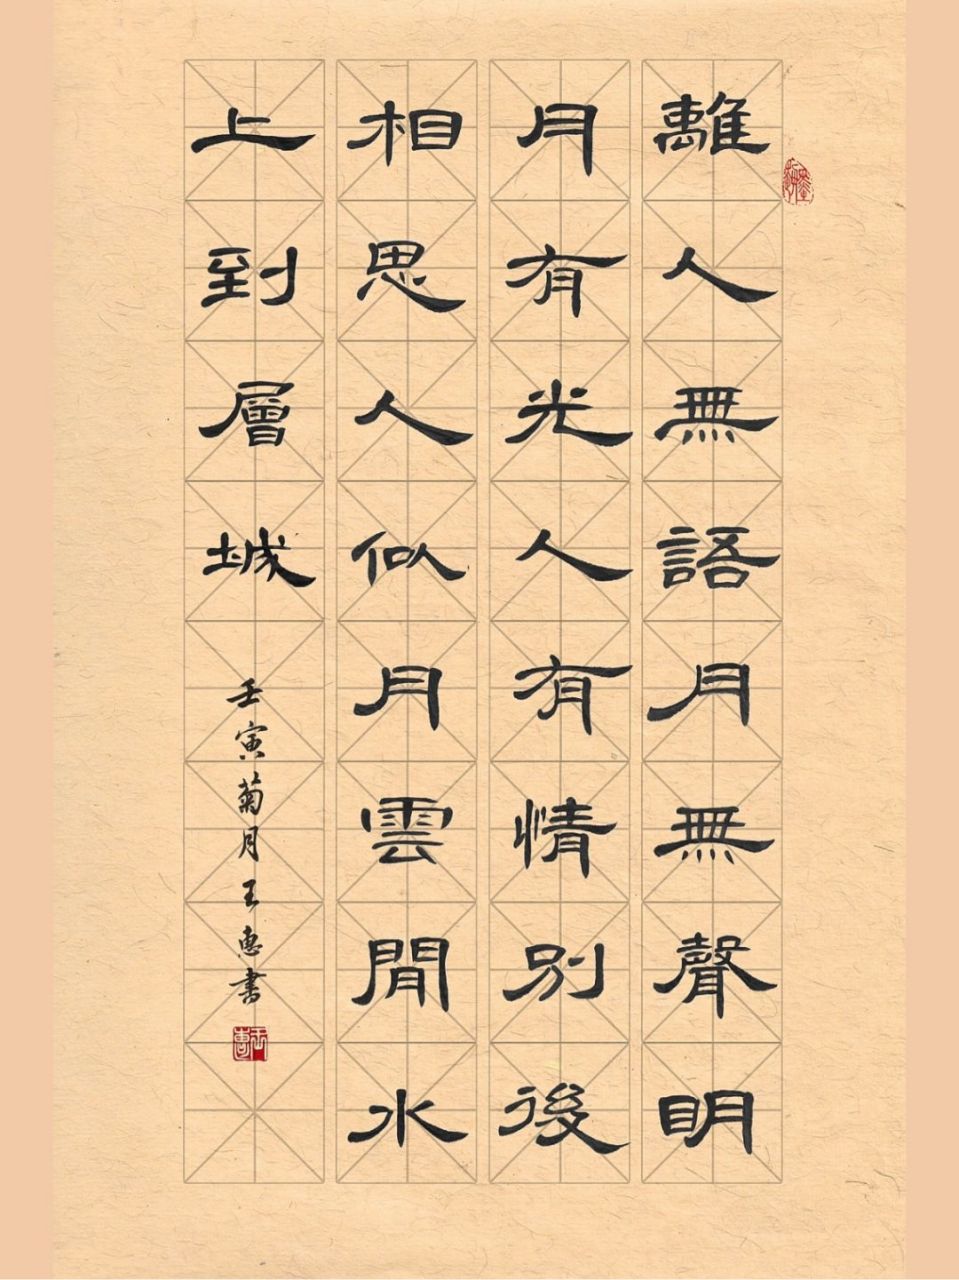 離人無語月無聲明
月有光人有情別後
相思人似月雲間水
上到層城
壬寅菊月王惠書